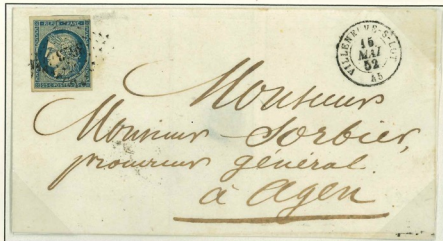 REPUB. FRANC.
VILLENEUVE-S-LOT
15
MAI
52
45
Monsieur
Monsieur Sorbier,
procureur général
à Agen